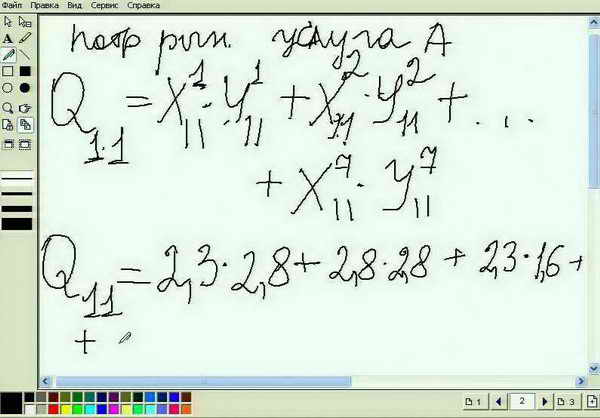 Файл Правка Вид Сервис Справка
потр рын. услуга А
Q₁.₁ = X¹₁₁ · Y¹₁₁ + X²₁₁ · Y²₁₁ + . . .
+ X⁷₁₁ · Y⁷₁₁
Q₁₁ = 2,3 · 2,8 + 2,8 · 2,8 + 2,3 · 1,6 +
+
1 2 3